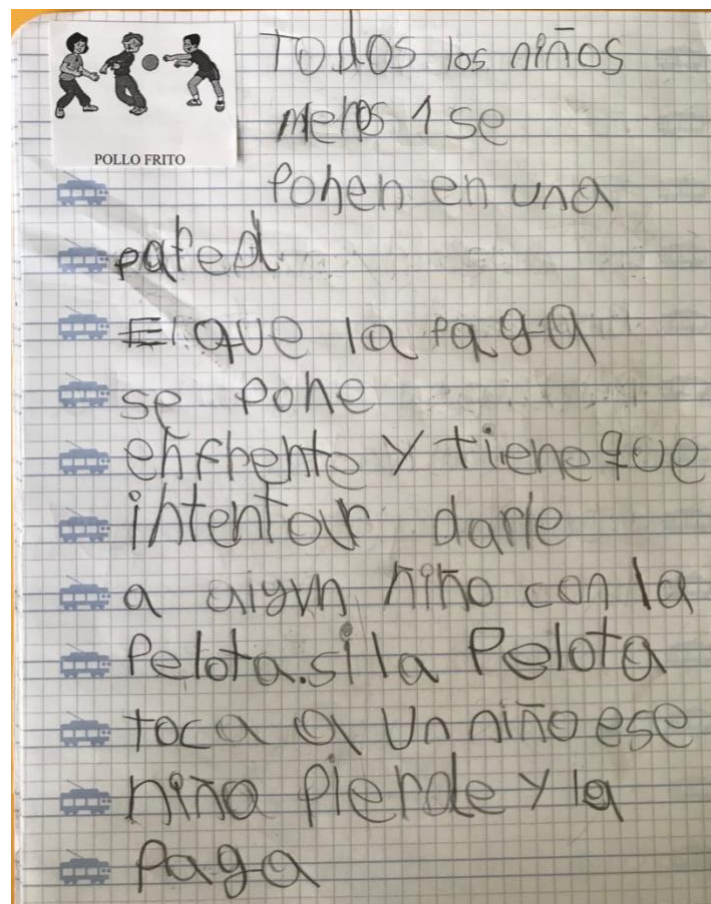 POLLO FRITO
Todos los niños
menos 1 se
ponen en una
pared.
El que la paga
se pone
enfrente y tiene que
intentar darle
a algun niño con la
Pelota. si la Pelota
toca a un niño ese
niño pierde y la
Paga